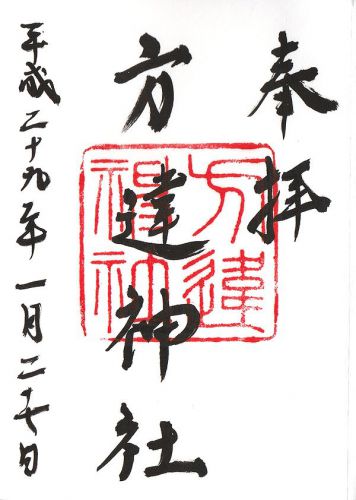 奉拝
方違神社
平成二十九年一月二十七日
方違